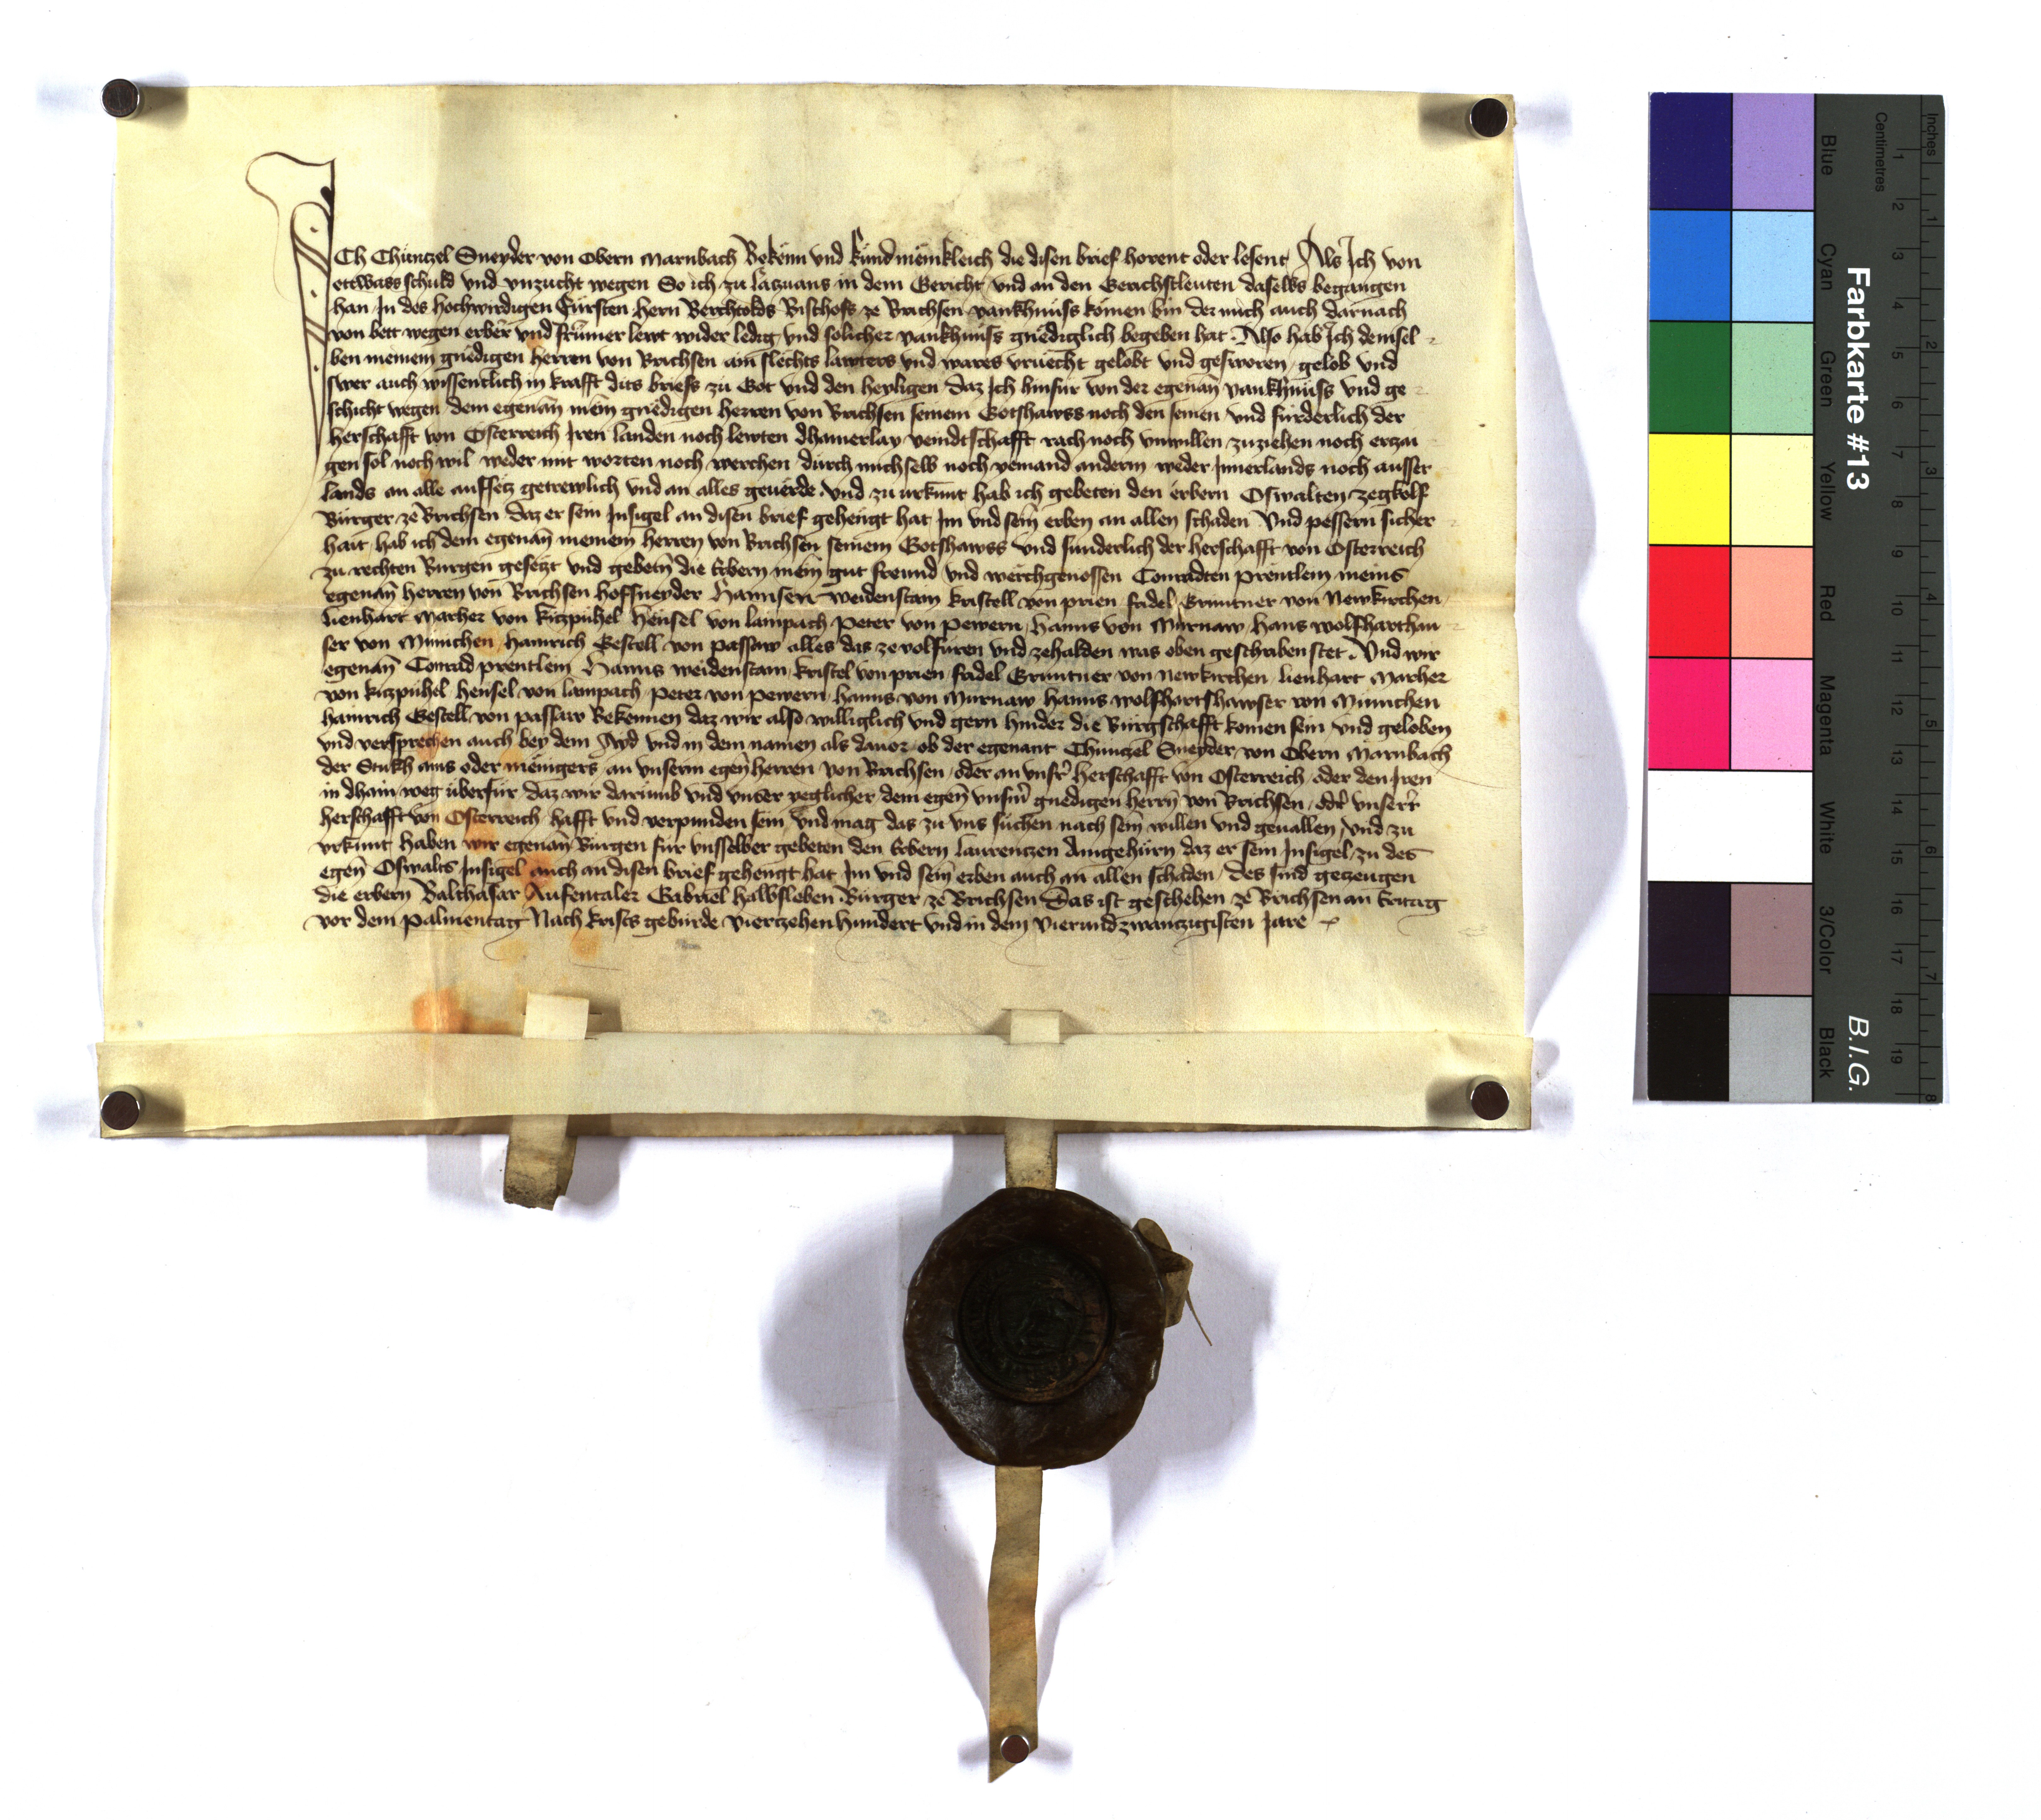 ICh Chüntzel Sneyder von Obern Marnbach Bekenn vnd kund menikleich die disen brief horent oder lesent Als Ich von
ettwass schuld vnd vnzucht wegen So ich zu Latzuans in dem Gericht vnd an den Gerichstleuten daselbs begangen
han In des hochwirdigen Fürsten hern Berchtolds Bischofs ze Brichsen vankhnüss komen bin der mich auch darnach
von bett wegen erber vnd frumer lewt wider ledig vnd solicher vankhnüss gnediglich begeben hat Also hab Ich demsel
ben meinem gnedigen herren von Brichsen ain slechts lawters vnd wares vruecht gelobt vnd gesworen gelob vnd
swer auch wissentlich in krafft dits briefs zu Got vnd den heyligen daz Ich hinfur von der egenan̄ vankhnüss vnd ge
schicht wegen dem egenan̄ mein̄ gnedigen herren von Brichsen seinem Gotshawss noch den seinen vnd fürderlich der
herschafft von Osterreich Iren landen noch lewten dhainerlay veindtschafft rach noch vnwillen zuziehen noch ertzai
gen sol noch wil weder mit worten noch werchen durch mich selb noch yemand anderm weder Innerlands noch ausser
lands an alle auffsetz getrewlich vnd an alles geuerde vnd zu urkunt hab ich gebeten den erbern Oswalten Zegkolf
Burger ze Brichsen daz er sein Insigel an disen brief gehengt hat Im vnd sein̄ erben an allen schaden Vnd pessern sicher
hait hab ich dem egenan̄ meinem herren von Brichsen seinem Gotshawss vnd sunderlich der herschafft von Osterreich
zu rechten Burgen gesetzt vnd gebetn̄ die Erbern mein gut freund vnd werchgenossen Conradten prentlein meins
egenan̄ herren von Brichsen Hofsneyder Hannsen weidenstain kristell von prien fridel Gruntner von Newkirchen
lienhart Marher von kitzpuhel Hensel von lampach Peter von pewern Hanns von Murnaw Hans wolfharthau
ser von Munichen Hainrich Gestell von passaw alles das ze volfuren vnd zehalden was oben geschriben stet Vnd wir
egenan̄ Conrad prentlein Hanns weidenstain kristel von prien fridel Gruntner von newkirchen lienhart Marher
von kitzpuhel Hensel von lampach peter von pewern hanns von Murnaw hanns wolfhartshawser von Munichen
hainrich Gestell von passaw Bekennen daz wir also williglich vnd gern hinder die Burgschafft komen sein vnd geloben
vnd versprechen auch bey dem Ayd vnd in dem namen als dauor ob der egenant Chuntzel Sneyder von Obern Marnbach
der Stukh ains oder meingers an vnserm egen̄ herren von Brichsen oder an vnsr̄ herschafft von Osterreich oder den Iren
in dhain weg überfür daz wir darumb vnd vnser yeglicher dem egen̄ vnsm̄ gnedigen herrn̄ von Brichsen odr̄ vnserr̄
herschafft von Osterreich hafft vnd verpunden sein vnd mag das zu vns suchen nach sein̄ willen vnd geuallen vnd zu
vrkunt haben wir egenan̄ Burgen für vnsselber gebeten den Erbern laurentzen Amgehürn daz er sein Insigel zu des
egen̄ Oswalts Insigel auch an disen brief gehengt hat Im vnd sein̄ erben auch an allen schaden des sind getzeugen
die erbern Balthasar Aufentaler Gabriel halbsleben Burger ze Brichsen Das ist geschehen ze Brichsen an Eritag
vor dem palmentag Nach krists geburde viertzehenhundert vnd in dem vierundzwantzigisten Jare
Farbkarte #13
B.I.G.
Blue Cyan Green Yellow Red Magenta White 3/Color Black
Centimetres 1 2 3 4 5 6 7 8 9 10 11 12 13 14 15 16 17 18 19
Inches 1 2 3 4 5 6 7 8